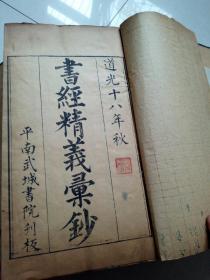 道光十八年秋
書經精義彙鈔
平南武城書院刊板